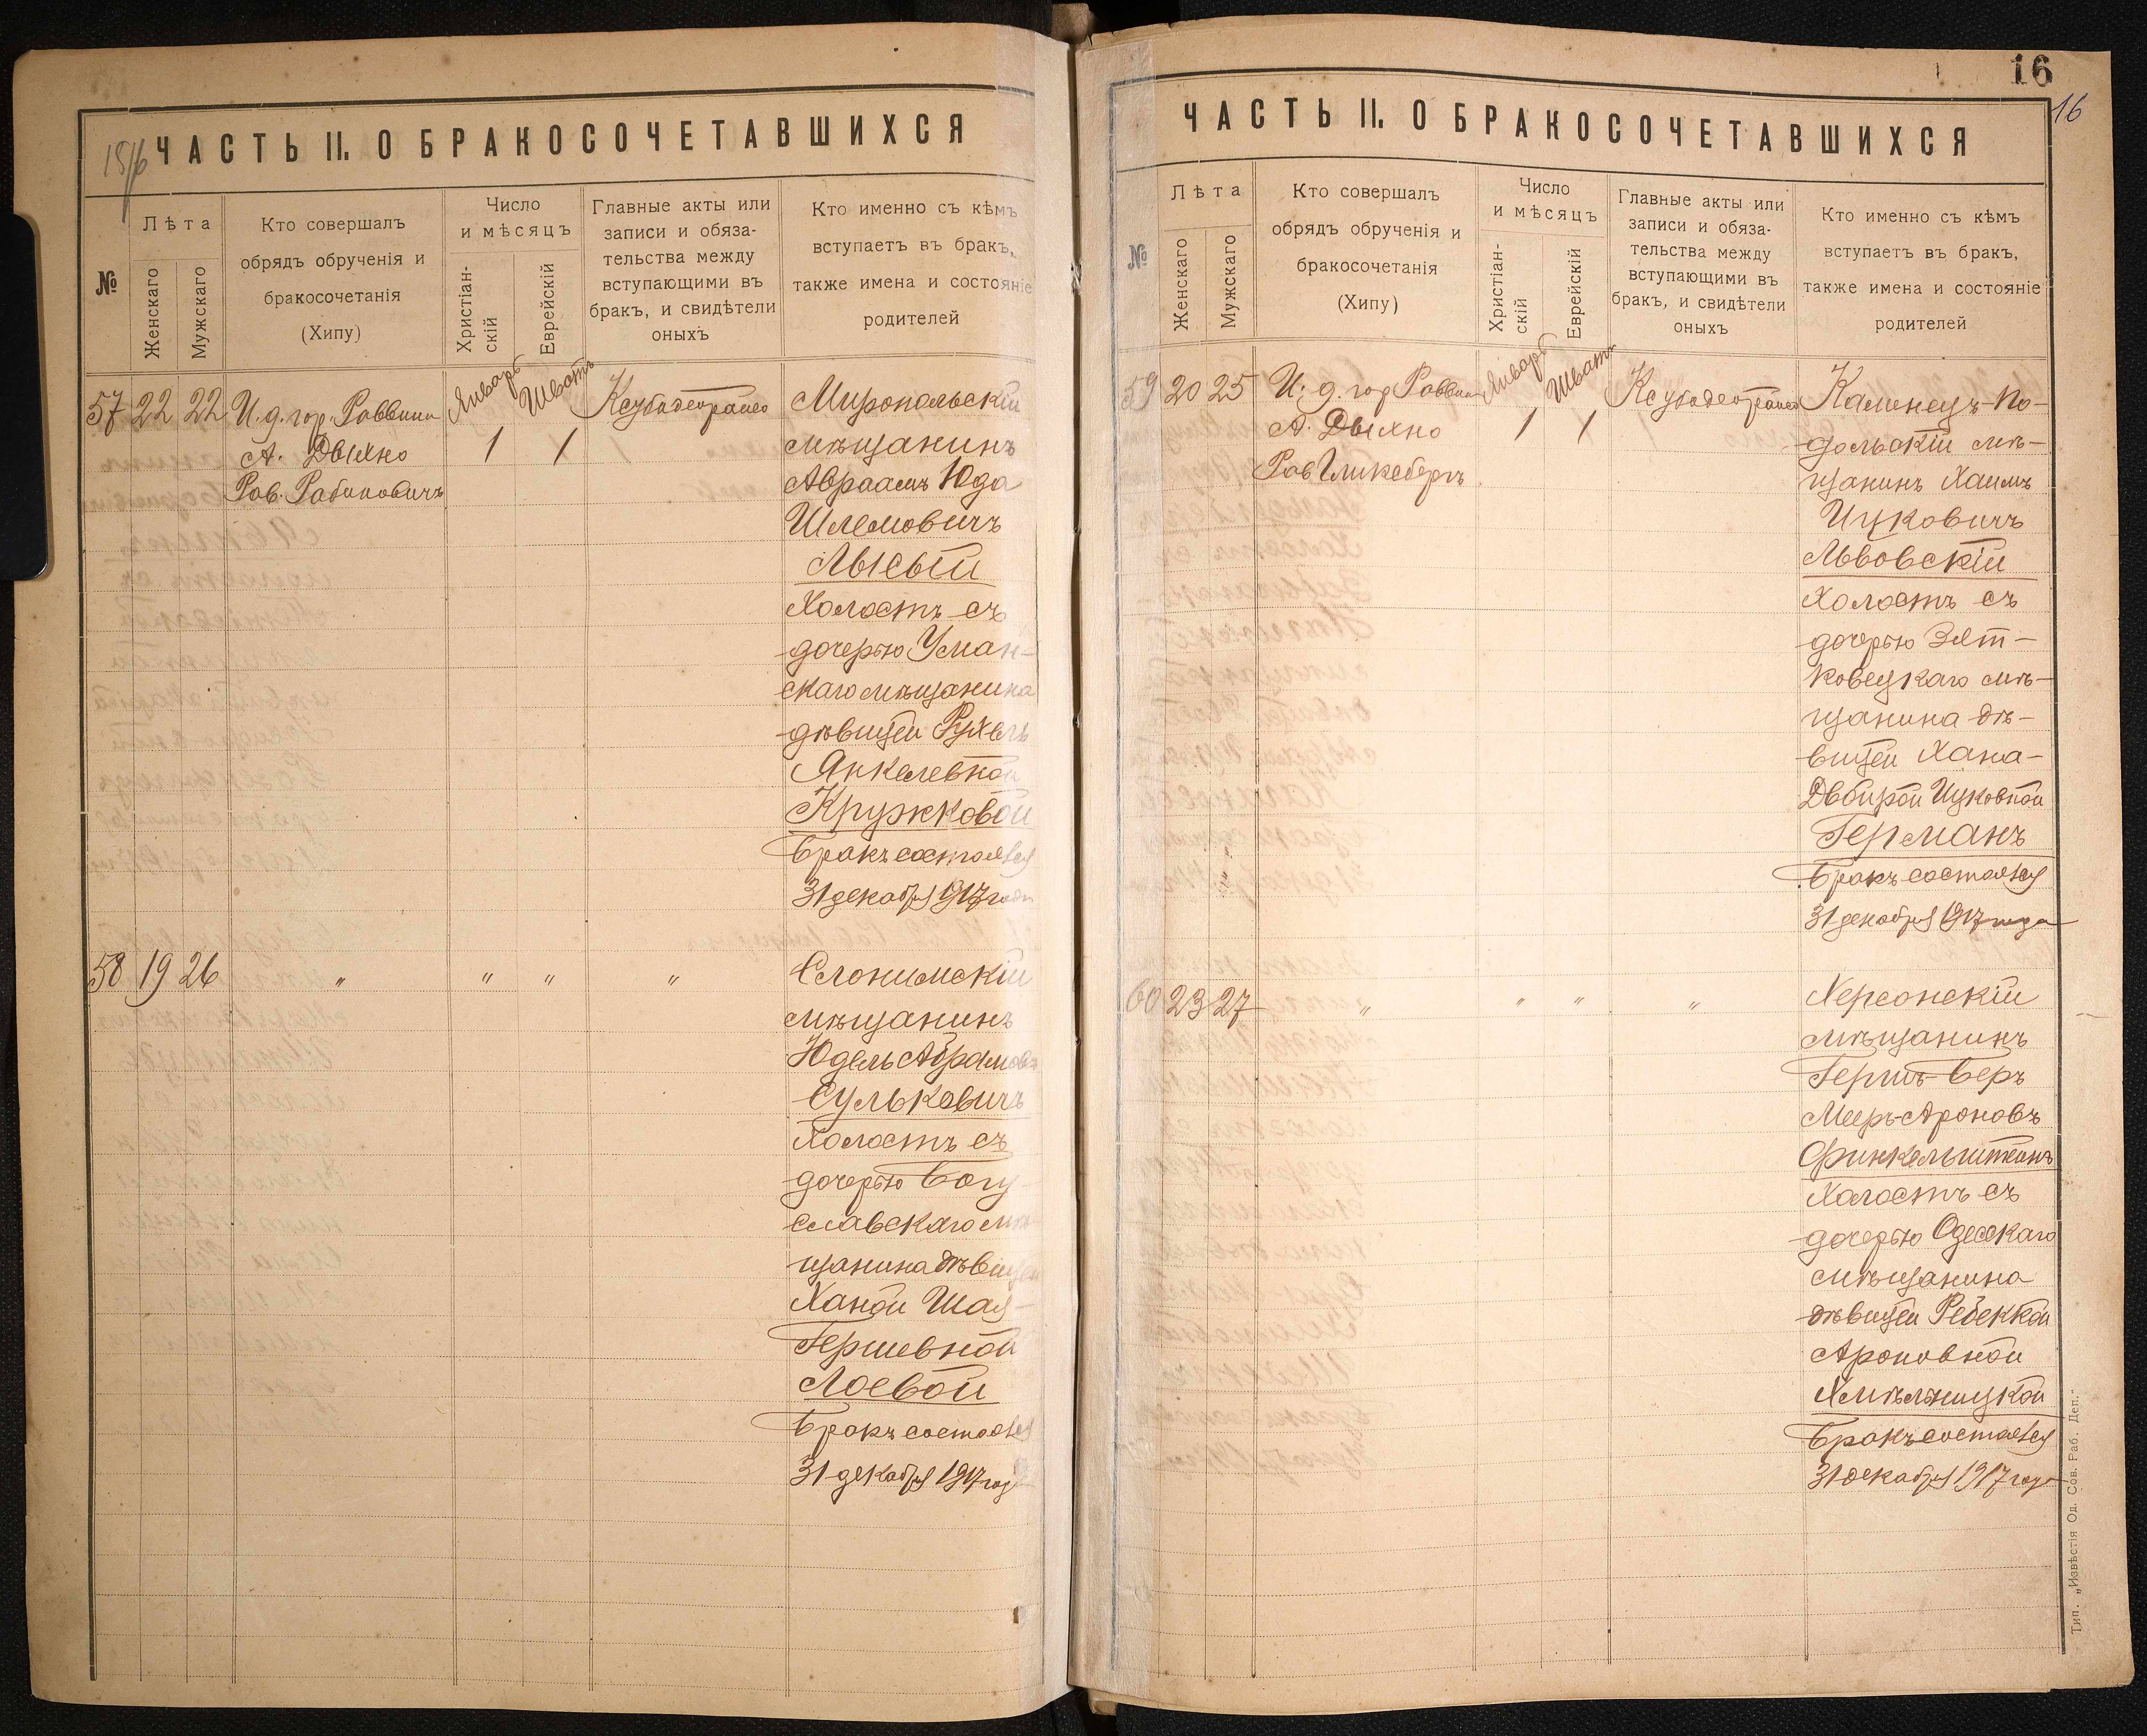 15/16
ЧАСТЬ II. О БРАКОСОЧЕТАВШИХСЯ
№
Лѣта
Женскаго
Мужскаго
Кто совершалъ
обрядъ обрученія и
бракосочетанія
(Хипу)
Число
и мѣсяцъ
Христіан-
скій
Еврейскій
Главные акты или
записи и обяза-
тельства между
вступающими въ
бракъ, и свидѣтели
оныхъ
Кто именно съ кѣмъ
вступаетъ въ бракъ,
также имена и состояніе
родителей
57 22 22 И. д. гор. Раввина Январь Шватъ Миропольскій
А. Дыхно 1 1 мѣщанинъ
Рав. Рабиновичъ Авраамъ Юда
Шлемовичъ
Лысый
Холостъ съ
дочерью Уман-
скаго мѣщанина
дѣвицей Рухель
Янкелевной
Кружковой
Бракъ состоялся
31 декабря 1917 года
58 19 26 " " " " Слонимскій
мѣщанинъ
Юдель Абрамовъ
Сулькевичъ
Холостъ съ
дочерью Богу-
славскаго мѣ-
щанина дѣвицей
Ханой Шая-
Гершевной
Лоевой
Бракъ состоялся
31 декабря 1917 года
16
16
ЧАСТЬ II. О БРАКОСОЧЕТАВШИХСЯ
№
Лѣта
Женскаго
Мужскаго
Кто совершалъ
обрядъ обрученія и
бракосочетанія
(Хипу)
Число
и мѣсяцъ
Христіан-
скій
Еврейскій
Главные акты или
записи и обяза-
тельства между
вступающими въ
бракъ, и свидѣтели
оныхъ
Кто именно съ кѣмъ
вступаетъ въ бракъ,
также имена и состояніе
родителей
59 20 25 И. д. гор Раввина Январь Шватъ Каменецъ-По-
А. Дыхно 1 1 дольскій мѣ-
Рав Гликсбергъ щанинъ Хаимъ
Ицковичъ
Львовскій
Холостъ съ
дочерью
мѣ-
щанина дѣ-
вицей Хана-
Двойрой Ицковной
Германъ
Бракъ состоялся
31 декабря 1917 года
60 23 27 " " " " Херсонскій
мѣщанинъ
Гершъ-Беръ
Мееръ-Ароновъ
Финкельштейнъ
Холостъ съ
дочерью Одесскаго
мѣщанина
дѣвицей Ребеккой
Ароновной
Хмѣльницкой
Бракъ состоялся
31 декабря 1917 года
Тип. „Извѣстія Од. Сов. Раб. Деп."